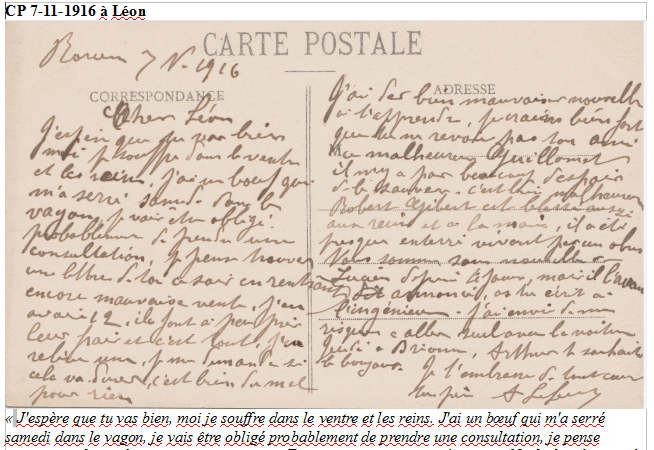 CP 7-11-1916 à Léon
CARTE POSTALE
Rouen 7 Nov. 1916
CORRESPONDANCE
ADRESSE
Cher Léon
J'espère que tu vas bien
moi je souffre dans le ventre
et les reins, j'ai un bœuf qui
m'a serré samedi dans le
vagon, je vais être obligé
probablement de prendre une
consultation, je pense trouver
une lettre de toi ce soir en rentrant
encore mauvaise vente, j'en
avais 12, ils font à peu près
leur prix et c'est tout, j'en
retire une, je me demande si
cela va durer, c'est bien du mal
pour rien
J'ai des bien mauvaises nouvelles
à t'apprendre, je crains bien fort
que tu ne revois pas ton ami
M
ce malheureux Guillomet
il n'y a pas beaucoup d'espoir
de le sauver. c'est bien malheureux
Robert Gibert est blessé aussi
aux reins et à la main, il a été
presque enterré vivant par un obus
Nous sommes sans nouvelles
Lucien depuis 4 jours, mais il l'avait
annoncé, as tu écrit à
l'ingénieur. J'ai envie de me
risquer à aller seul avec la voiture
Jeudi à Brionne, Arthur te souhaite
le bonjour.
Je t'embrasse de tout cœur
ton père
« J'espère que tu vas bien, moi je souffre dans le ventre et les reins. J'ai un bœuf qui m'a serré
samedi dans le vagon, je vais être obligé probablement de prendre une consultation, je pense